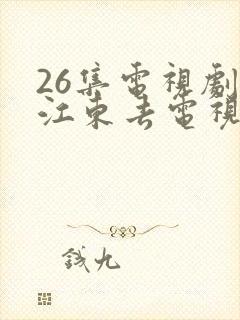 26集電視劇
江東去電視
錢九